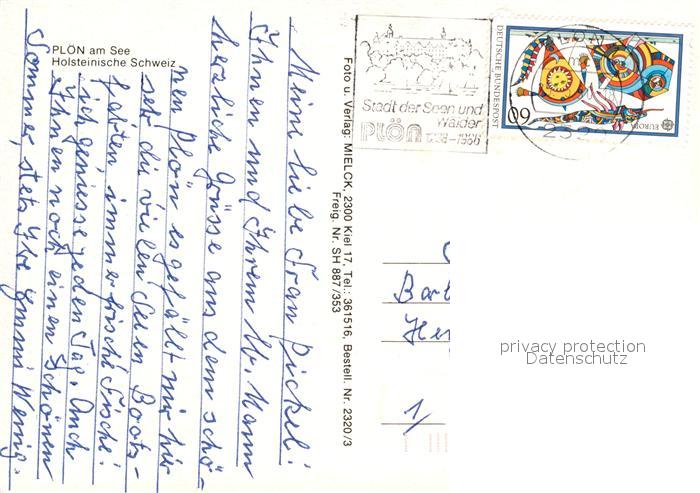 PLÖN am See
Holsteinische Schweiz
Meine liebe Frau Pickel!
Ihnen und Ihrem lb. Mann
herzliche Grüsse aus dem schö-
nen Plön es gefällt mir hier
sehr die vielen Seen Boots-
fahrten, immer frische Fische!
ich geniesse jeden Tag. Auch
Ihnen noch einen schönen
Sommer, stets Ihre Emmi Wenig.
Foto u. Verlag: MIELCK, 2300 Kiel 17, Tel.: 361516, Bestell. Nr. 2320/3
Freig. Nr. SH 887/353
Stadt der Seen und
Wälder
PLÖN 1236-1986
DEUTSCHE BUNDESPOST
60
EUROPA
Bart
Her
1/
privacy protection
Datenschutz